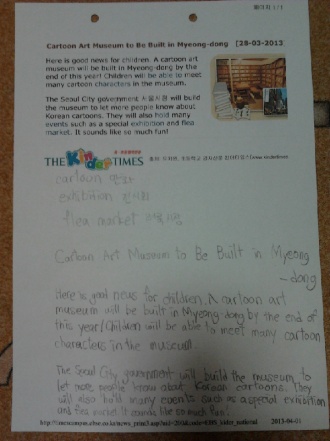 페이지 1 / 1
Cartoon Art Museum to Be Built in Myeong-dong [28-03-2013]
Here is good news for children. A cartoon art
museum will be built in Myeong-dong by the
end of this year! Children will be able to meet
many cartoon characters in the museum.
The Seoul City government 서울시청 will build
the museum to let more people know about
Korean cartoons. They will also hold many
events such as a special exhibition and flea
market. It sounds like so much fun!
THE Kinder TIMES
cartoon 만화
exhibition 전시회
flea market
Cartoon Art Museum to Be Built in Myeong
-dong
Here is good news for children. A cartoon art
museum will be built in Myeong-dong by the end of
this year! Children will be able to meet many cartoon
characters in the museum.
The Seoul City government will build the museum to
let more people know about Korean cartoons. They
will also hold many events such as a special exhibition
and flea market. It sounds like so much fun!
2013-04-01